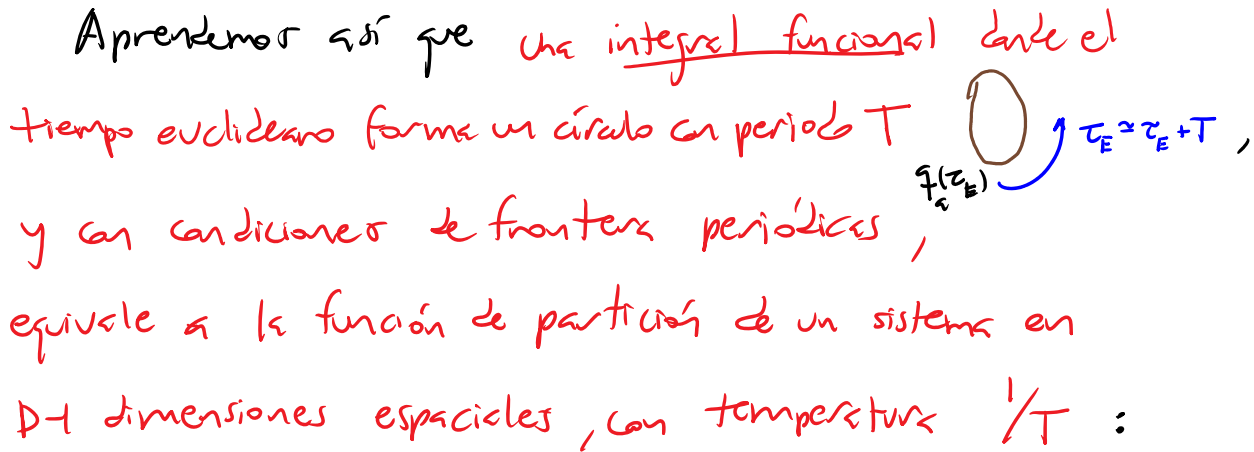 Aprendemos así que una integral funcional donde el
tiempo euclideano forma un círculo con periodo T τ_E ≃ τ_E + T ,
q_a(τ_E)
y con condiciones de frontera periódicas,
equivale a la función de partición de un sistema en
D-1 dimensiones espaciales, con temperatura 1/T :